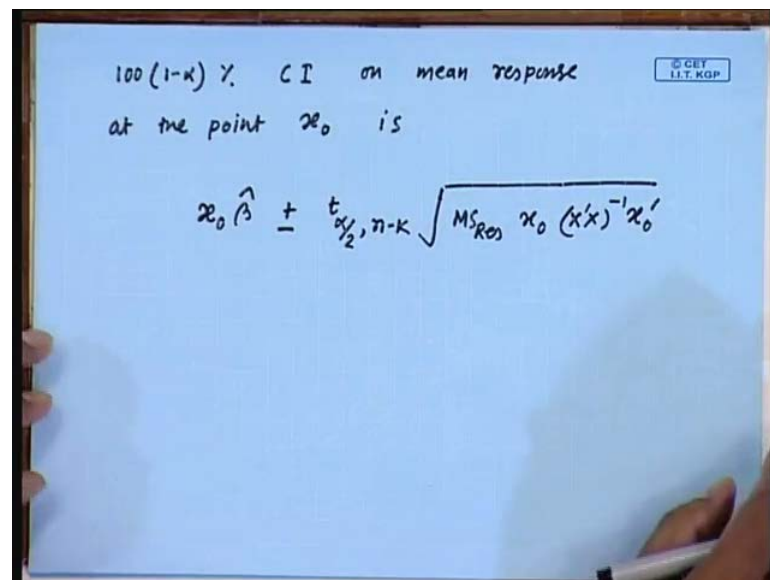 100 (1-α) % CI on mean response
© CET
I.I.T. KGP
at the point x₀ is
x₀ β̂ ± t_{α/2, n-k} √(MS_{Res} x₀ (X'X)⁻¹ x₀')